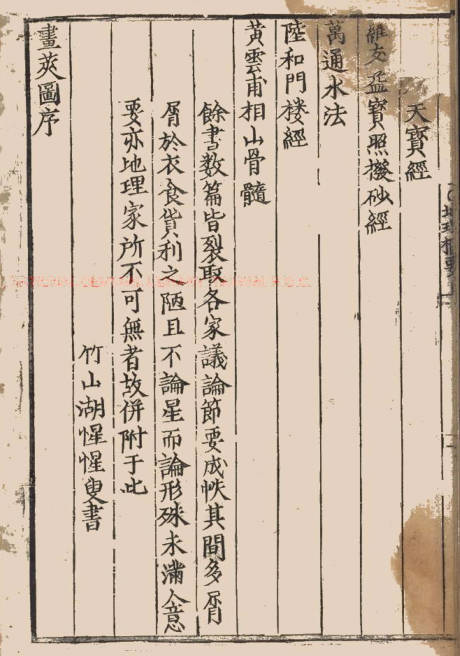 天寶經
孟寶照撥砂經
萬通水法
陸和門楼經
黃雲甫相山骨髓
餘書数篇皆裂取各家議論節要成帙其間多屑
屑於衣食貨利之陋且不論星而論形殊未滿人意
要亦地理家所不可無者故併附于此
竹山湖惺惺叟書
畫莢圖序